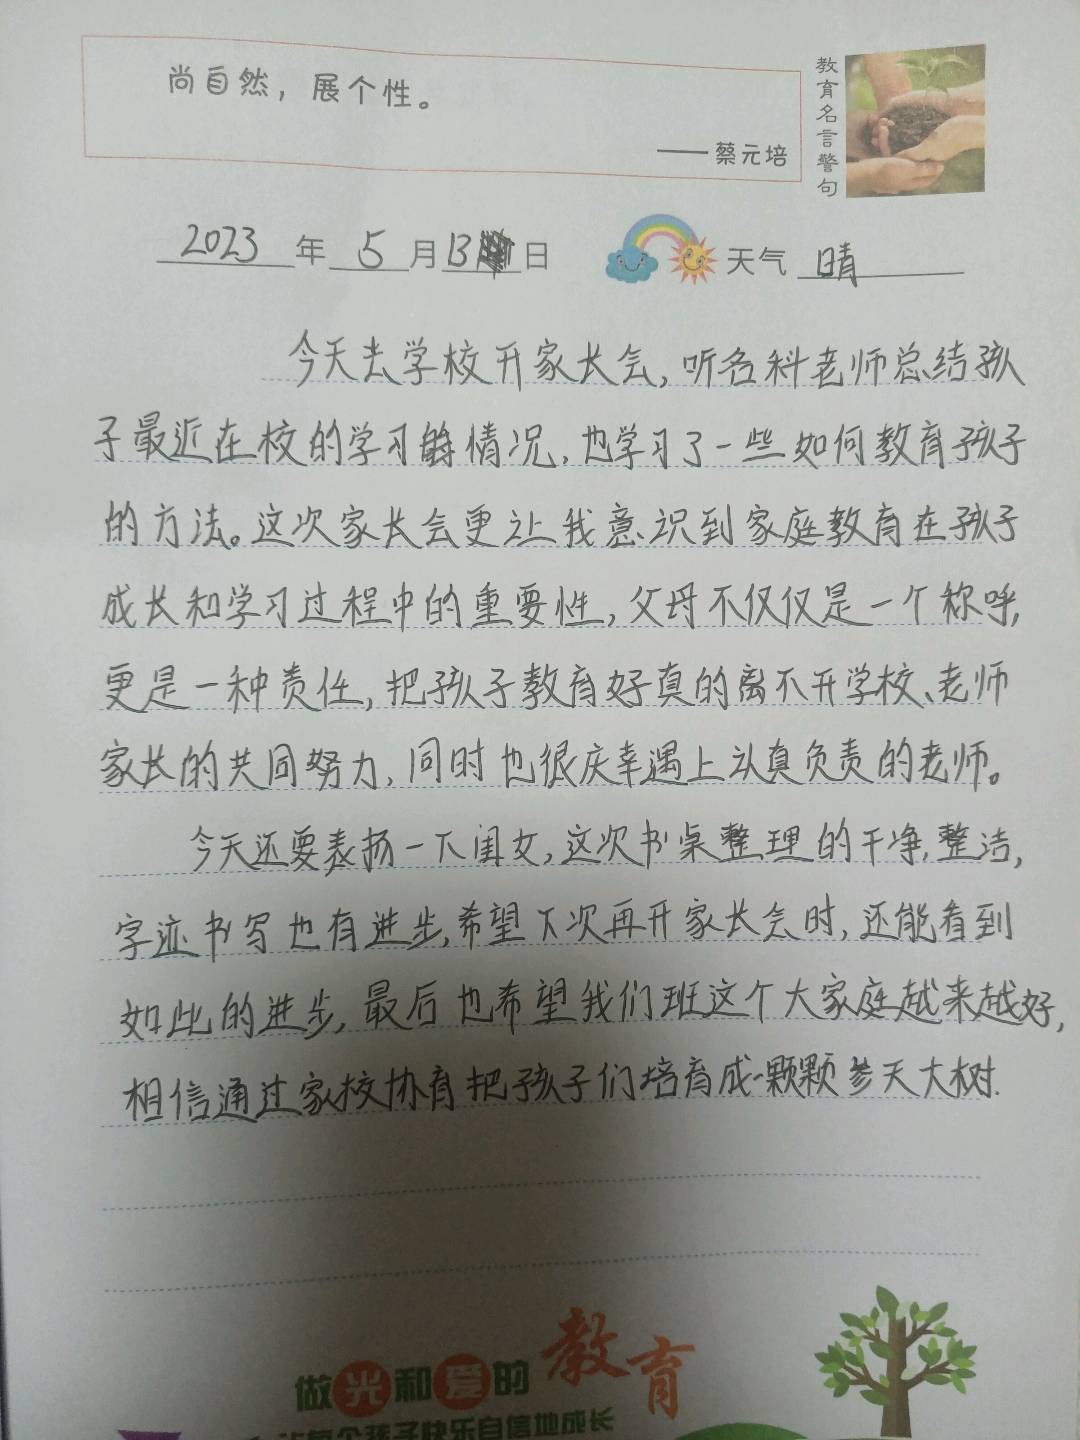 尚自然，展个性。
——蔡元培
教育名言警句
2023年5月13日 天气 晴
今天去学校开家长会,听各科老师总结孩
子最近在校的学习情况,也学习了一些如何教育孩子
的方法。这次家长会更让我意识到家庭教育在孩子
成长和学习过程中的重要性,父母不仅仅是一个称呼,
更是一种责任,把孩子教育好真的离不开学校、老师
家长的共同努力,同时也很庆幸遇上认真负责的老师。
今天还要表扬一下闺女,这次书桌整理的干净,整洁,
字迹书写也有进步,希望下次再开家长会时,还能看到
如此的进步,最后也希望我们班这个大家庭越来越好,
相信通过家校协育把孩子们培育成一颗颗参天大树.
做光和爱的教育
每个孩子快乐自信地成长